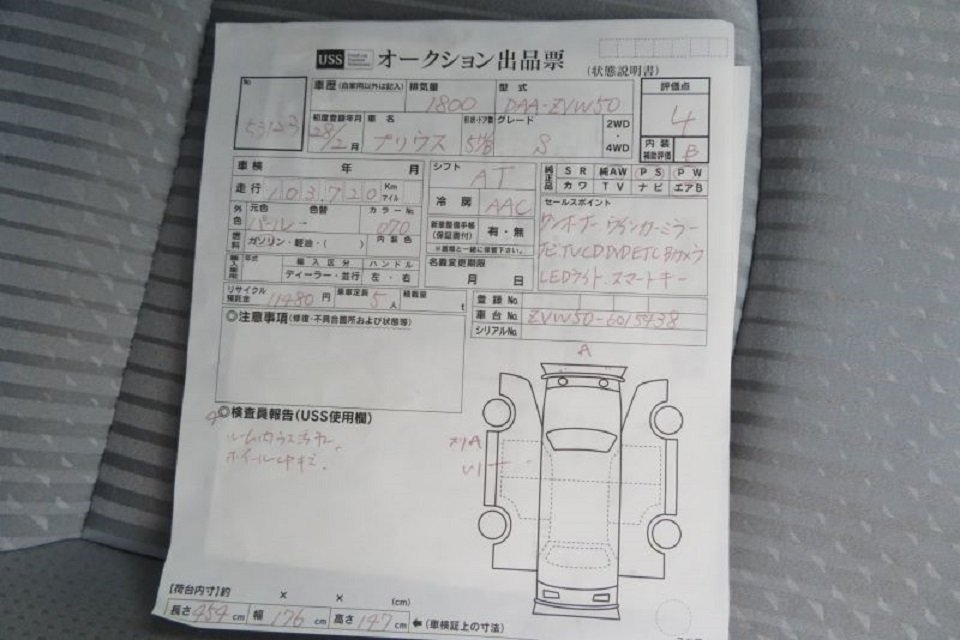 USS オークション出品票
(状態説明書)
No. 53123
車歴 (自家用以外は記入) 排気量 1800 型式 DAA-ZVW50 評価点 4
初度登録年月 28/2月 車名 プリウス 形状・ドア数 5 グレード S 2WD・4WD
内装補助評価 B
車検 年 月 シフト AT 純正品 SR 純AW PS PW
走行 103,720 Km マイル 冷房 AAC カワ TV ナビ エアB
外色 元色 色替 カラーNo. パール 070
新車整備手帳(保証書付) 有・無
※書類と一緒に保管下さい。
セールスポイント
ワンオーナー ウインカーミラー
ナビTVCDDVDETC Bカメラ
LEDライト.スマートキー
燃料 ガソリン・軽油・( ) 内装色
年式 輸入区分 ハンドル
ディーラー・並行 左・右
名義変更期限 月 日
リサイクル預託金 11480 円 乗車定員 5人 積載量 t
登録No.
車台No. ZVW50-6015438
シリアルNo.
◎注意事項(修復・不具合箇所および状態等)
A
◎検査員報告(USS使用欄)
ホイールキズ.
A
U1
[荷台内寸]約 x x (cm)
長さ 454 cm 幅 176 cm 高さ 147 cm ←(車検証上の寸法)